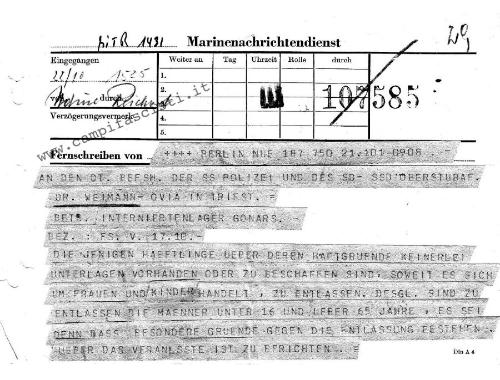 MITR 1431 Marinenachrichtendienst
Eingegangen
22/10 1525
von durch
Verzögerungsvermerk:
Weiter an Tag Uhrzeit Rolle durch
1.
2.
3.
4.
5.
107585
www.campifascisti.it
Fernschreiben von ++++ BERLIN NUE 187 750 21.10 0908 =
AN DEN DT. BEFSH. DER SS POLIZEI UND DES SD- SSOBERSTUBAF.
DR. WEIMANN- OVIA IN TRIEST. =
BETR. INTERNIERTENLAGER GONARS.-
BEZ. : FS. V. 17.10.-
DIE JENIGEN HAEFTLINGE UEBER DEREN HAFTGRUENDE KEINERLEI
UNTERLAGEN VORHANDEN ODER ZU BESCHAFFEN SIND, SOWEIT ES SICH
UM FRAUEN UND KINDER HANDELT , ZU ENTLASSEN. DESGL. SIND ZU
ENTLASSEN DIE MAENNER UNTER 16 UND UEBER 65 JAHRE , ES SEI
DENN DASS BESONDERE GRUENDE GEGEN DIE ENTLASSUNG BESTEHEN.
UEBER DAS VERANLSSTE IST ZU BERICHTEN. =
Din A 4